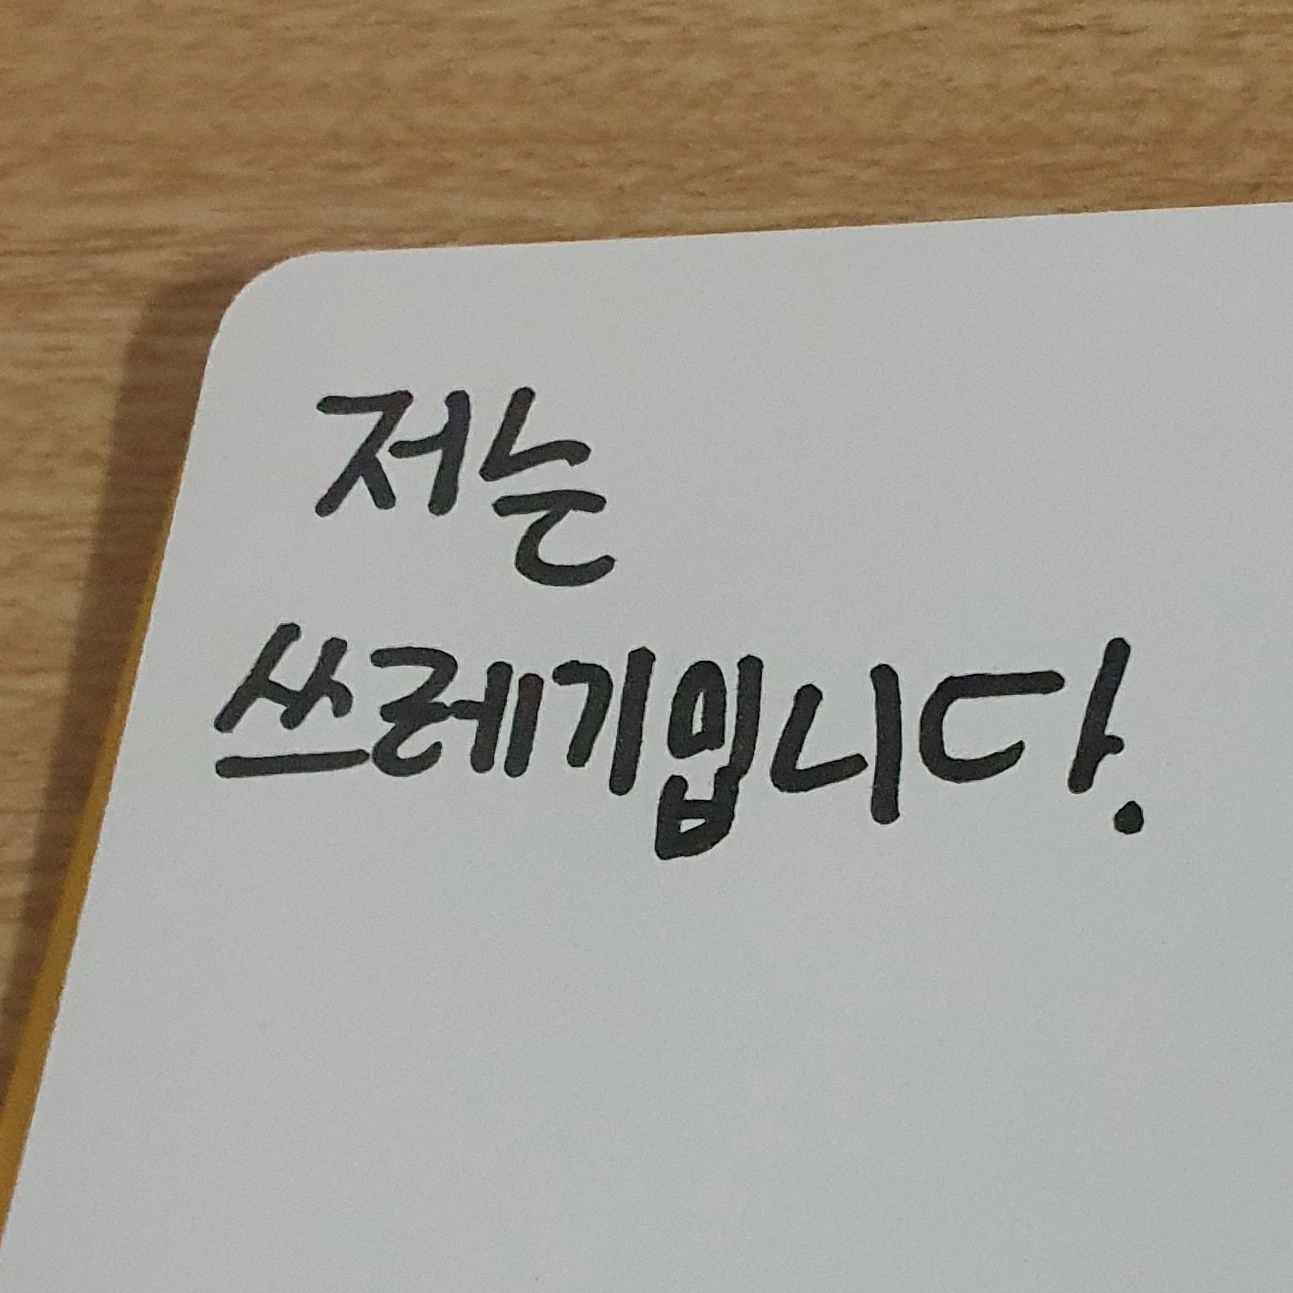 저는
쓰레기입니다.